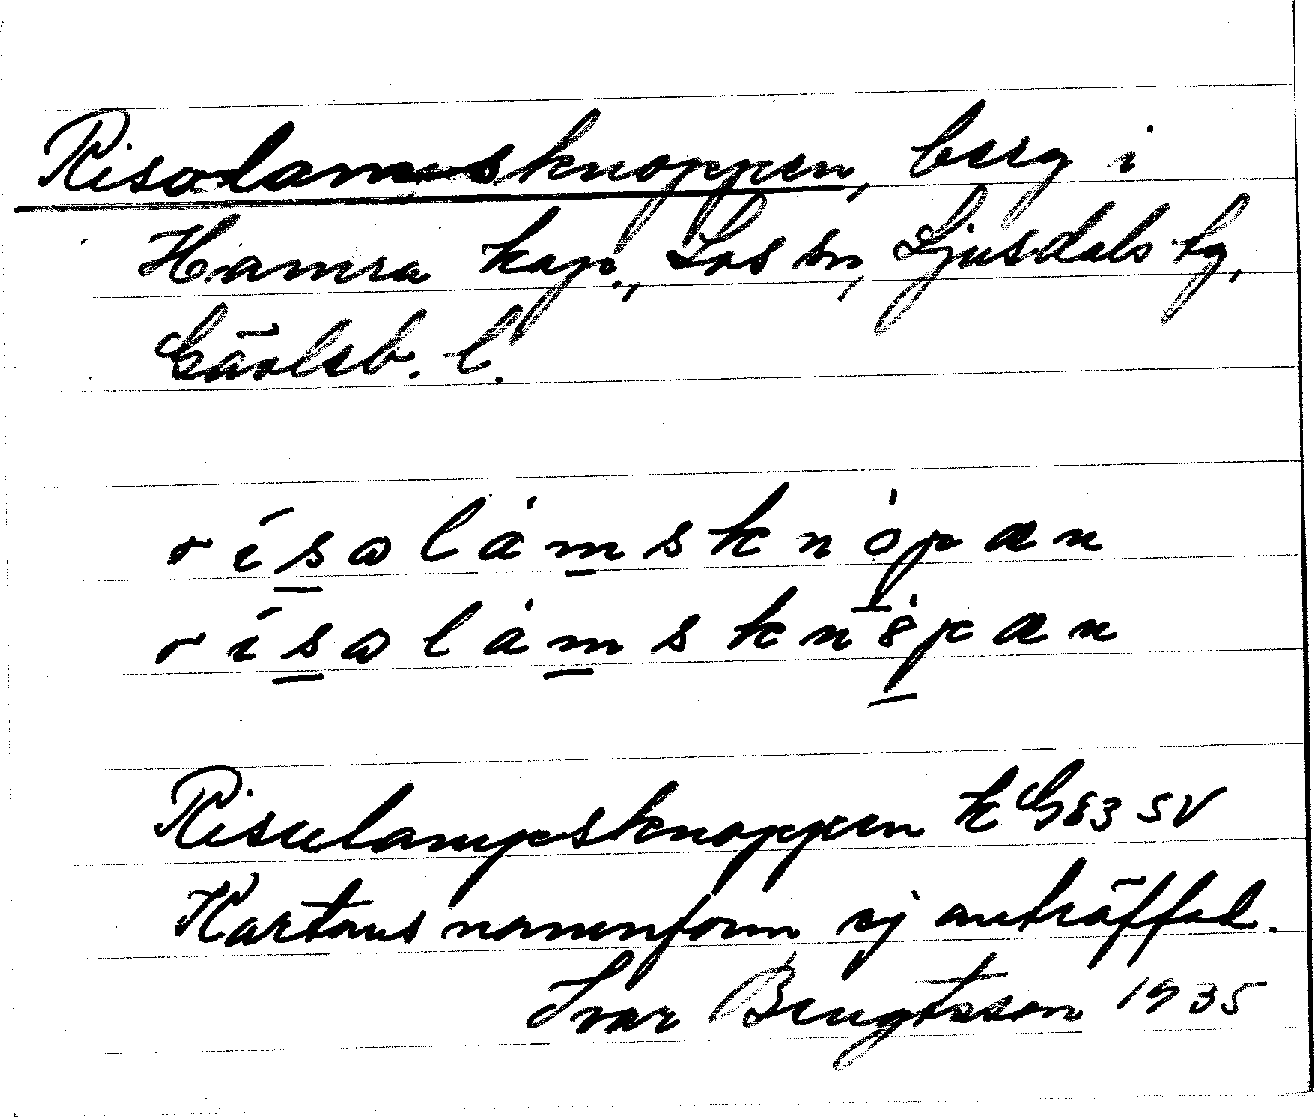 Risolamsknoppen, berg i
Hamra kap., Los sn, Ljusdals tg,
Gävleb. l.
rísɷlȧmsknȯpan
rísɷlȧmsknöpan
Risulampsknoppen k G 83 SV
Kartans namnform ej anträffad.
Ivar Bengtsson 1935